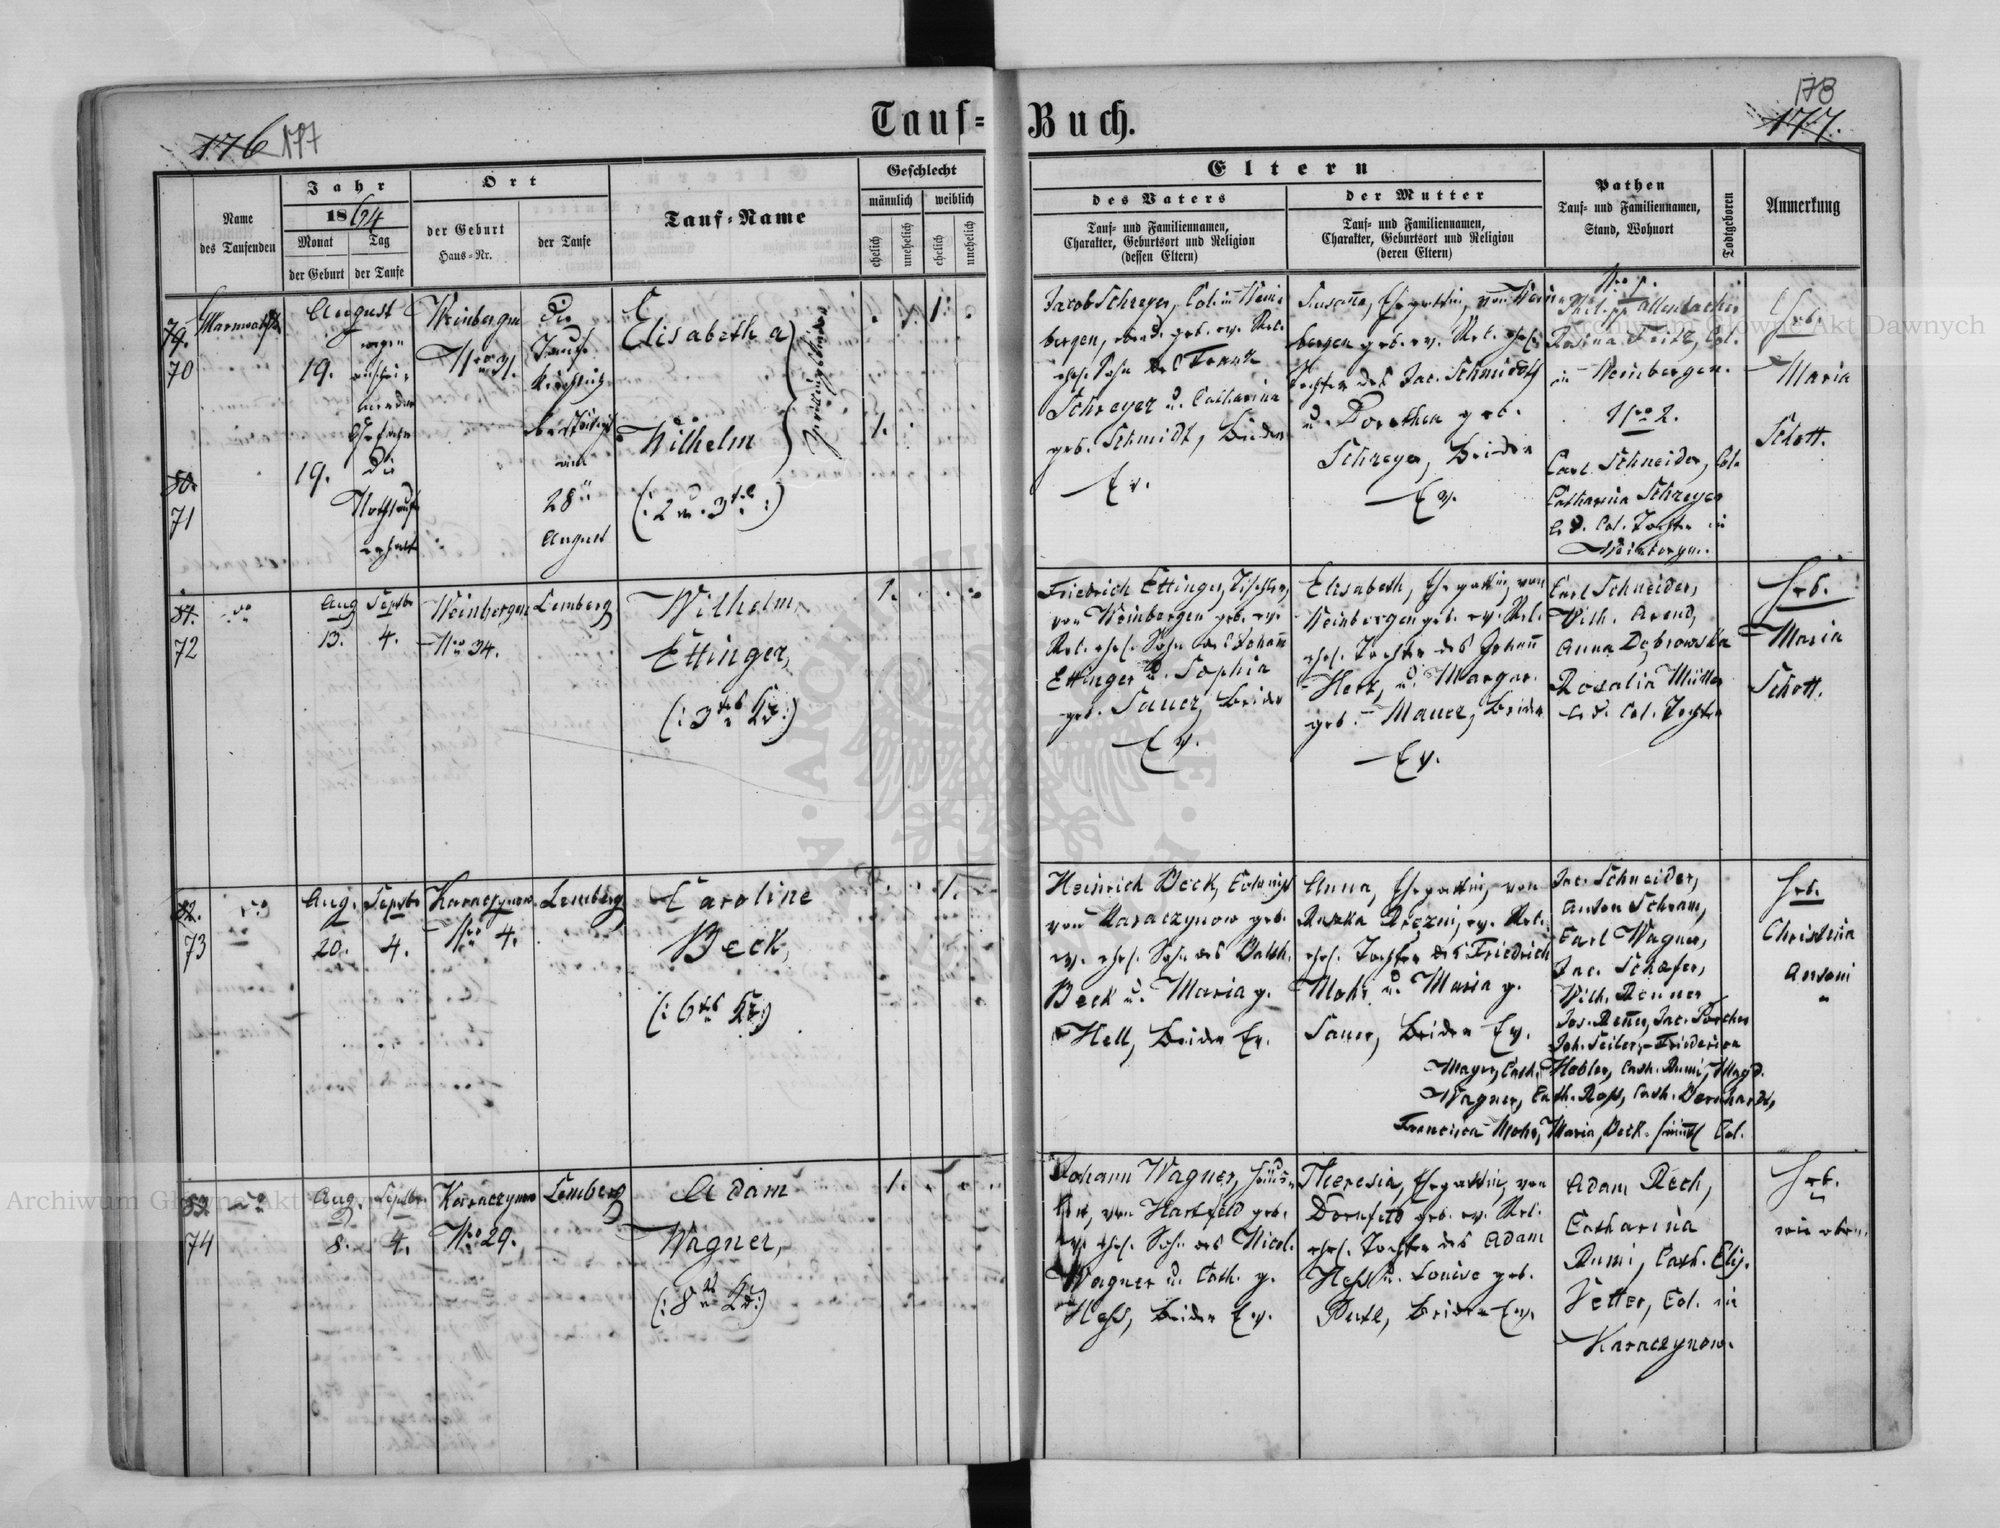 Tauf-Buch.
176 177
178
177.
Name
des Taufenden
Jahr
1864
Monat
Tag
der Geburt
der Taufe
Ort
der Geburt
Haus-Nr.
der Taufe
Tauf-Name
Geschlecht
männlich
weiblich
ehelich
unehelich
ehelich
unehelich
Eltern
des Vaters
Tauf- und Familiennamen,
Charakter, Geburtsort und Religion
(dessen Eltern)
der Mutter
Tauf- und Familiennamen,
Charakter, Geburtsort und Religion
(deren Eltern)
Pathen
Tauf- und Familiennamen,
Stand, Wohnort
Todtgeboren
Anmerkung
79.
70
August
19.
Weinbergen
Nro 31.
Die
Elisabetha
1.
Wilhelm
1.
Zwillingskinder
(: 2 u. 3te :)
80.
71
19.
Die
Nothtaufe
28
August
Jacob Schreyer, Col. in Wein-
bergen, geb. ev. Rel.
ehel. Sohn des Franz
Schreyer u. Catharina
geb. Schmidt, Beide
Ev.
Susanna, Ehegattin, von Wein-
bergen geb. ev. Rel. ehel.
Tochter des Jac. Schmidt
u. Dorothea geb.
Schreyer, Beide
Ev.
Nro 1.
Rosina Seitz, Col.
in Weinbergen.
Nro 2.
Carl Schneider, Col.
Catharina Schreyer
Col. Tochter in
Weinbergen.
Heb.
Maria
Schott.
81.
72
do
Aug
13.
Septbr
4.
Weinbergen
Nro 34.
Lemberg
Wilhelm
Ettinger,
(: 3tes Kd :)
1.
Friedrich Ettinger, Tischler,
von Weinbergen geb. ev.
Rel. ehel. Sohn des Johann
Ettinger u. Sophia
geb. Sauer, Beide
Ev.
Elisabeth, Ehegattin, von
Weinbergen geb. ev. Rel.
ehel. Tochter des Johann
Herz, u. Margar.
geb. Mauer, Beide
Ev.
Carl Schneider,
Wilh. Arend,
Anna Dąbrowska
Rosalia Müller
Col. Tochter
Heb.
Maria
Schott.
82.
73
do
Aug.
20.
Septbr
4.
Karaczynow
Nro 4.
Lemberg
Caroline
Beck,
(: 6tes Kd :)
1.
Heinrich Beck, Colonist
von Karaczynow geb.
ev. ehel. Sohn des Balth.
Beck u. Maria g.
Hell, Beide Ev.
Anna, Ehegattin, von
ev. Rel.
ehel. Tochter des Friedrich
Mohr u. Maria g.
Sauer, Beide Ev.
Jac. Schneider,
Anton Schram,
Carl Wagner,
Jac. Schäfer,
Wilh. Renner
Joh. Seiler, Friederica
Mayer, Cath. Hobler, Cath. Rumi, Magd.
Wagner, Cath. Ross, Cath. Bernhardt,
Francisca Mohr, Maria Beck Col.
Heb.
Christina
Antoni
83.
74
do
Aug.
8.
Septbr
4.
Karaczynow
Nro 29.
Lemberg
Adam
Wagner,
(: 8tes Kd :)
1.
Johann Wagner,
von Hartfeld geb.
ev. ehel. Sohn des Nicol.
Wagner u. Cath. g.
Hess, Beide Ev.
Theresia, Ehegattin, von
Dornfeld geb. ev. Rel.
ehel. Tochter des Adam
Hess u. Louise geb.
Beide Ev.
Adam Rech,
Catharina
Rumi, Cath. Elis.
Vetter, Col. in
Karaczynow.
Heb.
wie oben.
Archiwum Główne Akt Dawnych
Archiwum Główne Akt Dawnych